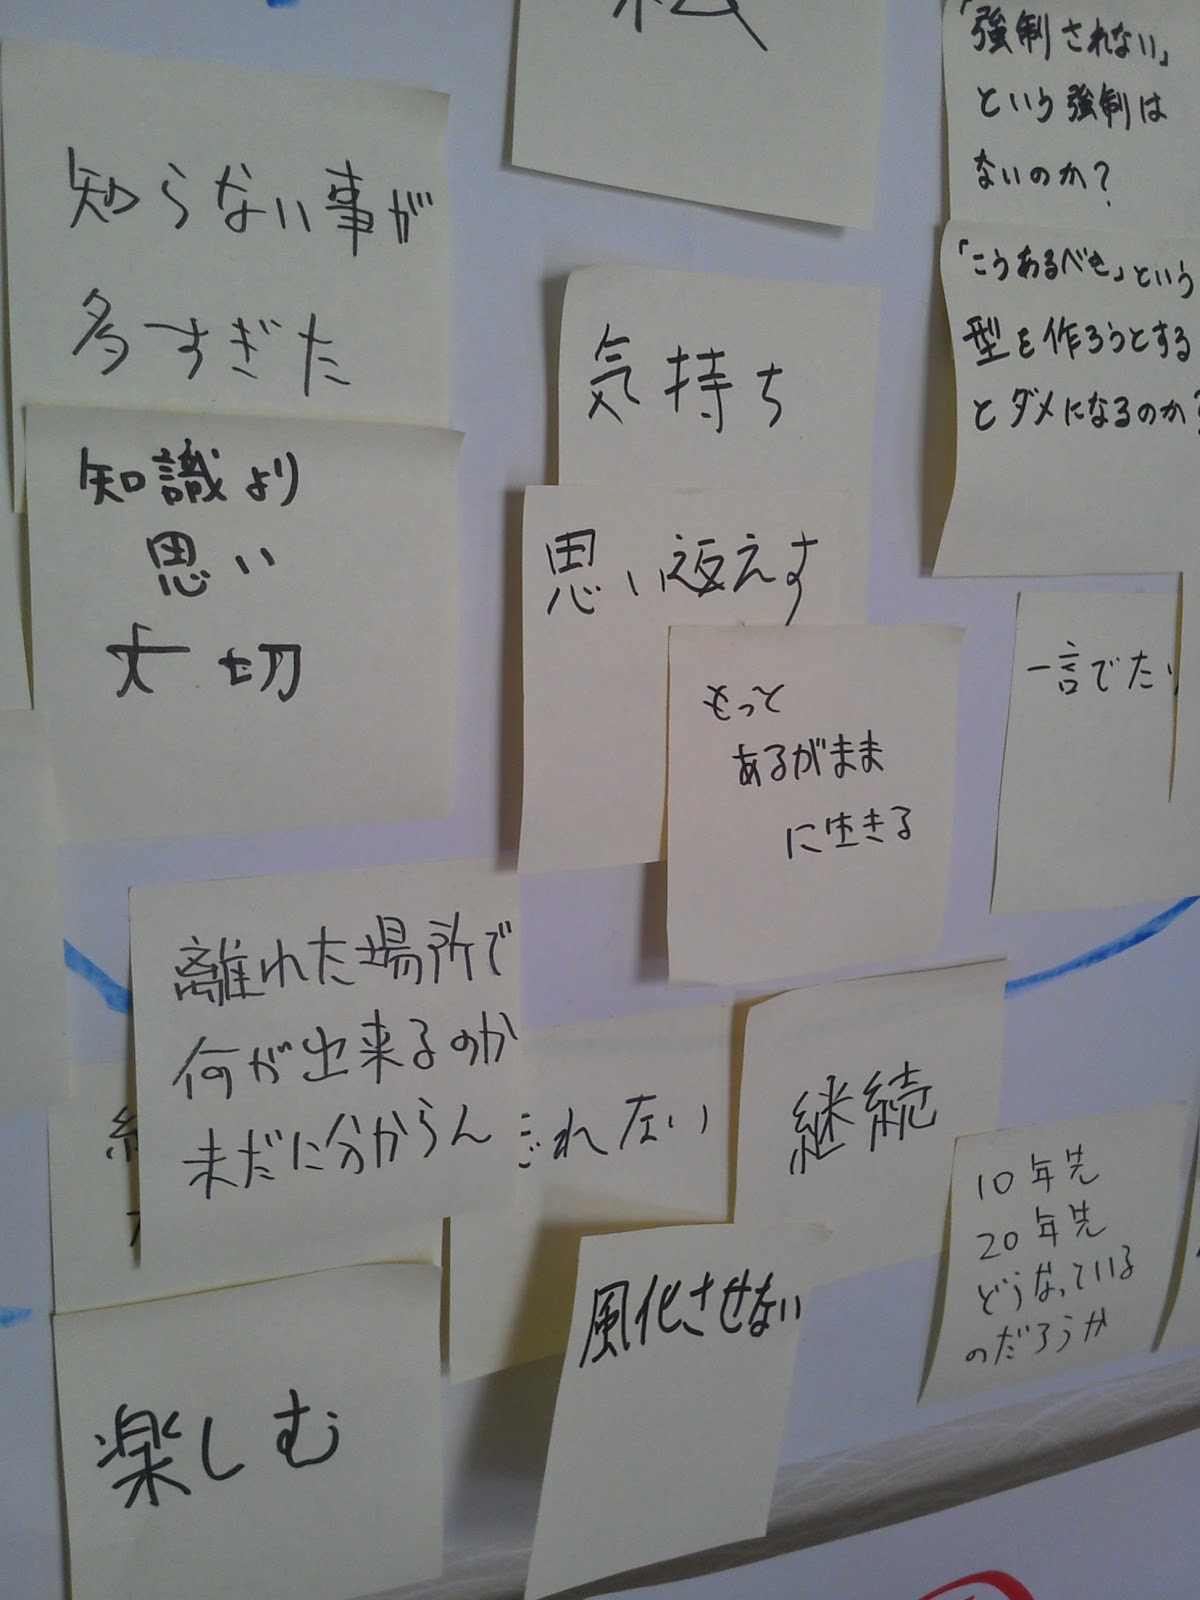 「強制されない」
という強制は
ないのか？
知らない事が
多すぎた
「こうあるべき」という
型を作ろうとする
とダメになるのか?
気持ち
知識より
思い
大切
思い返えす
もっと
あるがまま
に生きる
一言でた
離れた場所で
何が出来るのか
未だに分からん
れない
継続
10年先
20年先
どうなっている
のだろうか
風化させない
楽しむ